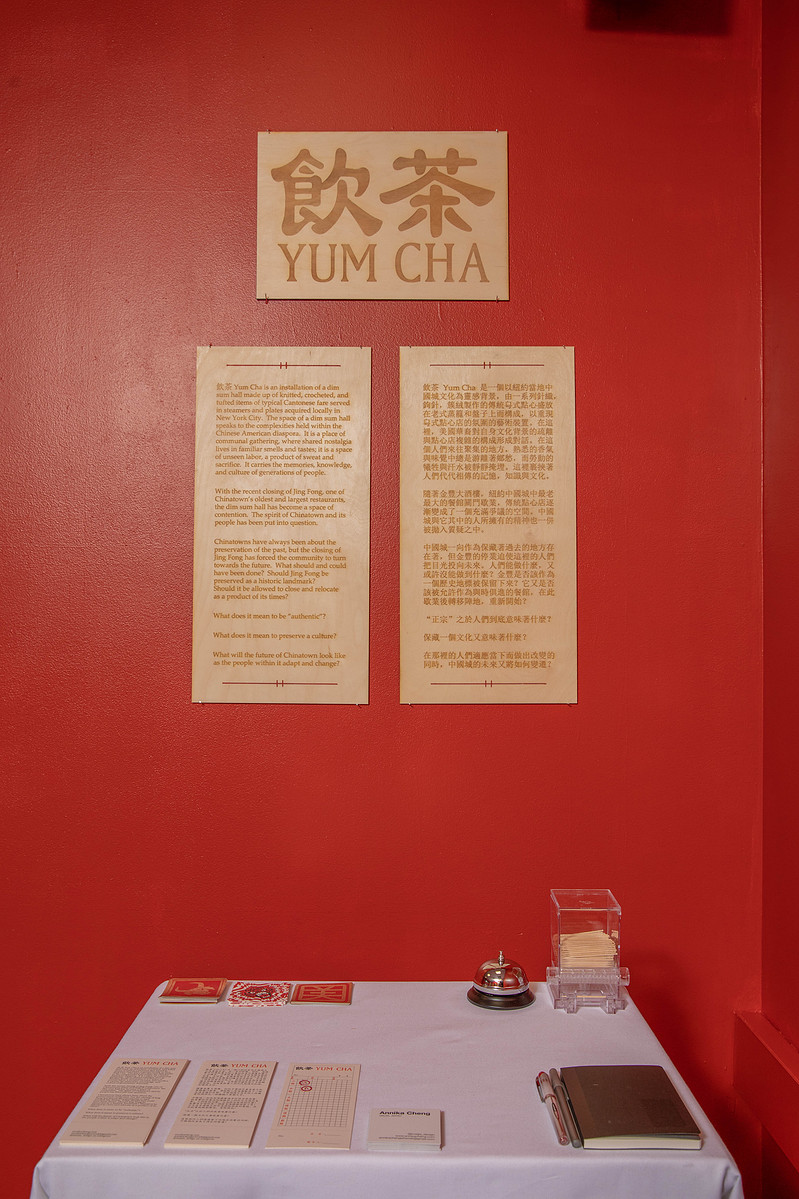 飲茶
YUM CHA
飲茶 Yum Cha is an installation of a dim
sum hall made up of knitted, crocheted, and
tufted items of typical Cantonese fare served
in steamers and plates acquired locally in
New York City. The space of a dim sum hall
speaks to the complexities held within the
Chinese American diaspora. It is a place of
communal gathering, where shared nostalgia
lives in familiar smells and tastes; it is a space
of unseen labor, a product of sweat and
sacrifice. It carries the memories, knowledge,
and culture of generations of people.
With the recent closing of Jing Fong, one of
Chinatown's oldest and largest restaurants,
the dim sum hall has become a space of
contention. The spirit of Chinatown and its
people has been put into question.
Chinatowns have always been about the
preservation of the past, but the closing of
Jing Fong has forced the community to turn
towards the future. What should and could
have been done? Should Jing Fong be
preserved as a historic landmark?
Should it be allowed to close and relocate
as a product of its times?
What does it mean to be "authentic"?
What does it mean to preserve a culture?
What will the future of Chinatown look like
as the people within it adapt and change?
飲茶 Yum Cha 是一個以紐約當地中
國城文化為靈感背景，由一系列針織，
鉤針，簇絨製作的傳統粵式點心盛放
在老式蒸籠和盤子上而構成，以重現
粵式點心店的氛圍的藝術裝置。在這
裡，美國華裔對自身文化背景的疏離
與點心店複雜的構成形成對話。在這
個人們來往聚集的地方，熟悉的香氣
與味覺中總是摻雜著鄉愁，而勞動的
犧牲與汗水被靜靜掩埋。這裡裹挾著
人們代代相傳的記憶，知識與文化。
隨著金豐大酒樓，紐約中國城中最老
最大的餐館關門歇業，傳統點心店逐
漸變成了一個充滿爭議的空間。中國
城與它其中的人所擁有的精神也一併
被拋入質疑之中。
中國城一向作為保藏著過去的地方存
在著，但金豐的停業迫使這裡的人們
把目光投向未來。人們能做什麼，又
或許沒能做到什麼？金豐是否該作為
一個歷史地標被保留下來？它又是否
該被允許作為與時俱進的餐館，在此
歇業後轉移陣地，重新開始？
“正宗”之於人們到底意味著什麼？
保藏一個文化又意味著什麼？
在那裡的人們適應當下而做出改變的
同時，中國城的未來又將如何變遷？
飲茶 YUM CHA
飲茶 YUM CHA
飲茶 YUM CHA
Annika Cheng